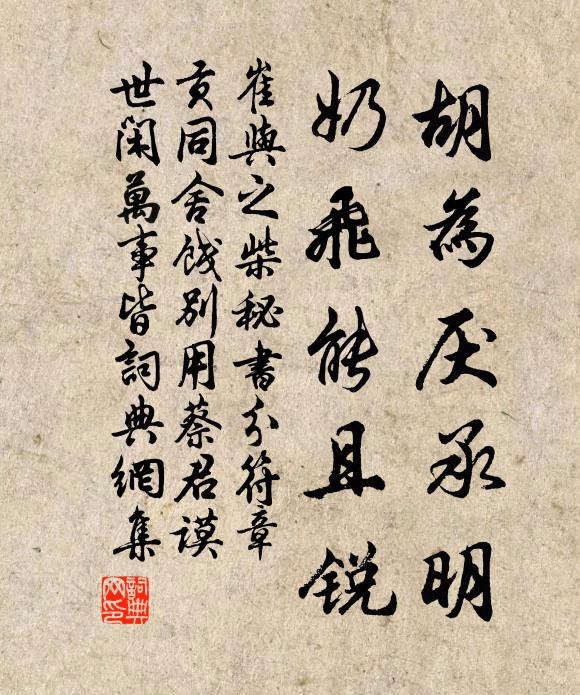 胡為厌承明
奶飛能且锐
崔與之柴秘書分符章
贡同舍餞别用蔡君謨
世閑萬事皆詞典網集
詞典
网印